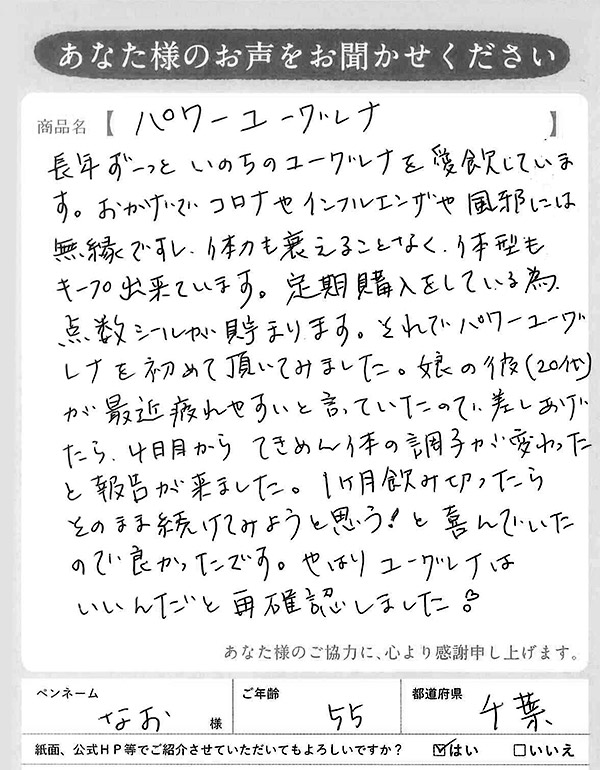 あなた様のお声をお聞かせください
商品名【パワーユーグレナ】
長年ずーっといのちのユーグレナを愛飲していま
す。おかげでコロナやインフルエンザや風邪には
無縁ですし、体力も衰えることなく、体型も
キープ出来ています。定期購入をしている為、
点数シールが貯まります。それでパワーユーグ
レナを初めて頂いてみました。娘の彼(20代)
が最近疲れやすいと言っていたので、差しあげ
たら、4日目からてきめん体の調子が変わった
と報告が来ました。1ヶ月飲み切ったら
そのまま続けてみようと思う!と喜んでいた
ので良かったです。やはりユーグレナは
いいんだと再確認しました
あなた様のご協力に、心より感謝申し上げます。
ペンネーム ご年齢 都道府県
なお 様 55 千葉
紙面、公式HP等でご紹介させていただいてもよろしいですか? ☑はい □いいえ